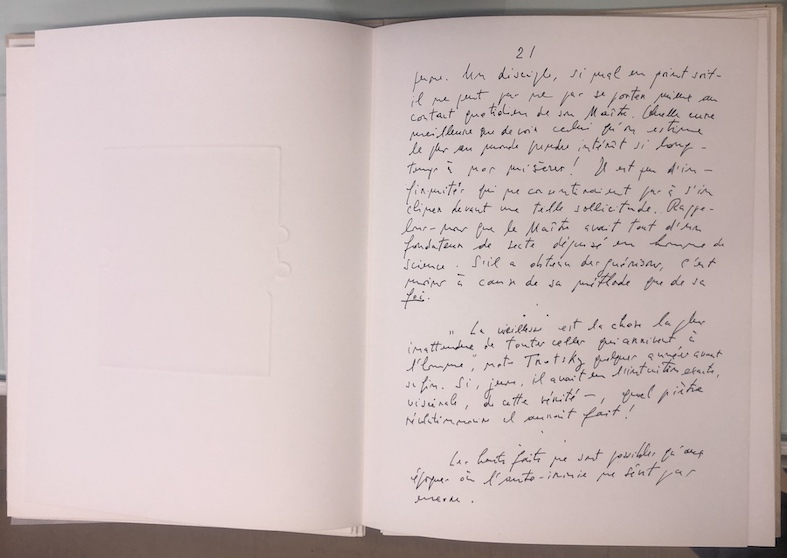 21
Un disciple, si mal en point soit-
il ne peut pas ne pas se porter mieux au
contact quotidien de son Maître. Quelle cure
meilleure que de voir celui qu'on estime
le plus au monde prendre intérêt si long-
temps à nos misères! Il est peu d'in-
firmités qui ne consentiraient pas à s'in
cliner devant une telle sollicitude. Rappe-
lons-nous que le Maître avait tout d'un
fondateur de secte déguisé en homme de
science. S'il a obtenu des guérisons, c'est
moins à cause de sa méthode que de sa
foi.
" La vieillesse est la chose la plus
inattendue de toutes celles qui arrivent à
l'homme", note Trotsky quelques années avant
sa fin. Si, jeune, il avait eu l'intuition exacte,
viscérale, de cette vérité –, quel piètre
révolutionnaire il aurait fait!
Les hauts faits ne sont possibles qu'aux
époques où l'auto-ironie ne sévit pas
encore.